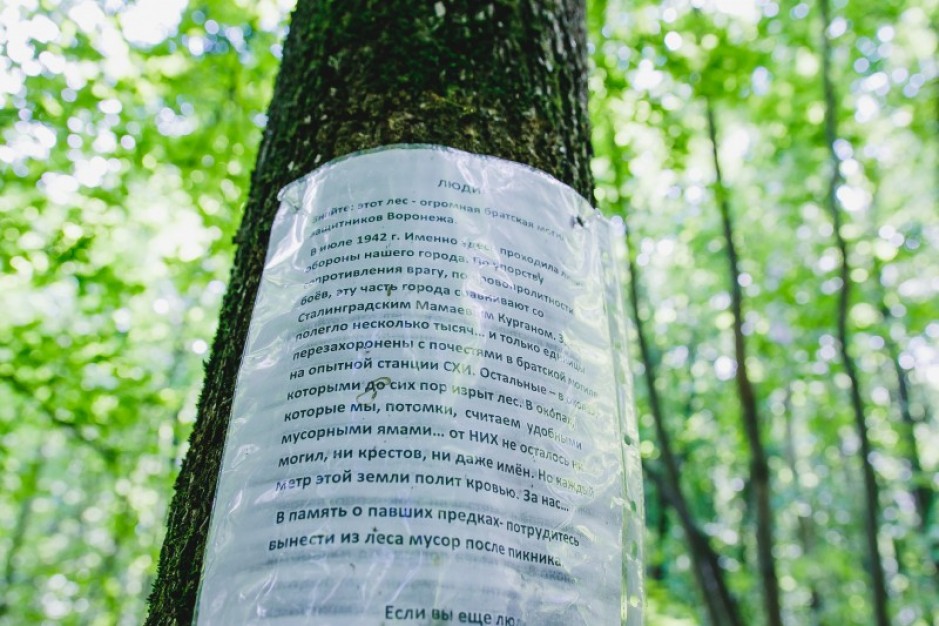 ЛЮДИ
Знайте: этот лес - огромная братская моги
защитников Воронежа.
В июле 1942 г. Именно здесь проходила
обороны нашего города. По упорству
сопротивления врагу, по кровопролитности
боёв, эту часть города сравнивают со
Сталинградским Мамаевым Курганом.
полегло несколько тысяч... и только единицы
перезахоронены с почестями в братской могиле
на опытной станции СХИ. Остальные – в окопах
которыми до сих пор изрыт лес. В окопах,
которые мы, потомки, считаем удобными
мусорными ямами... от НИХ не осталось ни
могил, ни крестов, ни даже имён. Но каждый
метр этой земли полит кровью. За нас...
В память о павших предках- потрудитесь
вынести из леса мусор после пикника
Если вы еще лю